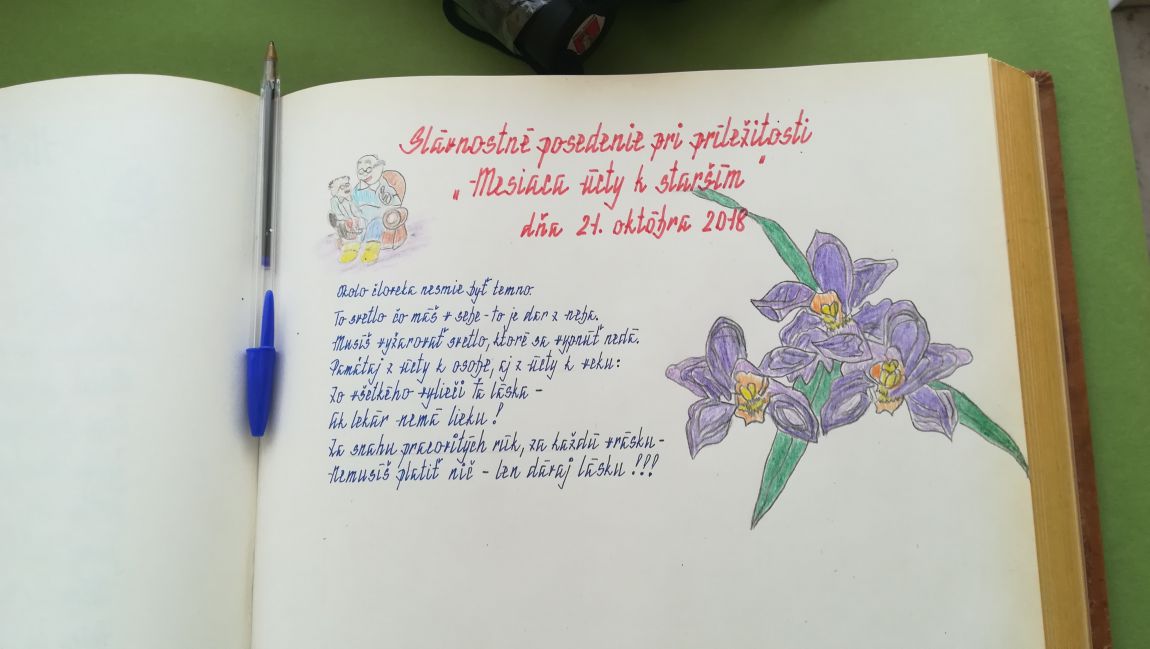 Slávnostné posedenie pri príležitosti
„Mesiaca úcty k starším"
dňa 21. októbra 2018
Okolo človeka nesmie byť temno.
To svetlo čo máš v sebe - to je dar z neba.
Musíš vyžarovať svetlo, ktoré sa vypnúť nedá.
Pamätaj z úcty k osobe, aj z úcty k veku:
Zo všetkého vylieči ťa láska -
Ak lekár nemá lieku!
Za snahu pracovitých rúk, za každú vrásku -
Nemusíš platiť nič - len dávaj lásku!!!